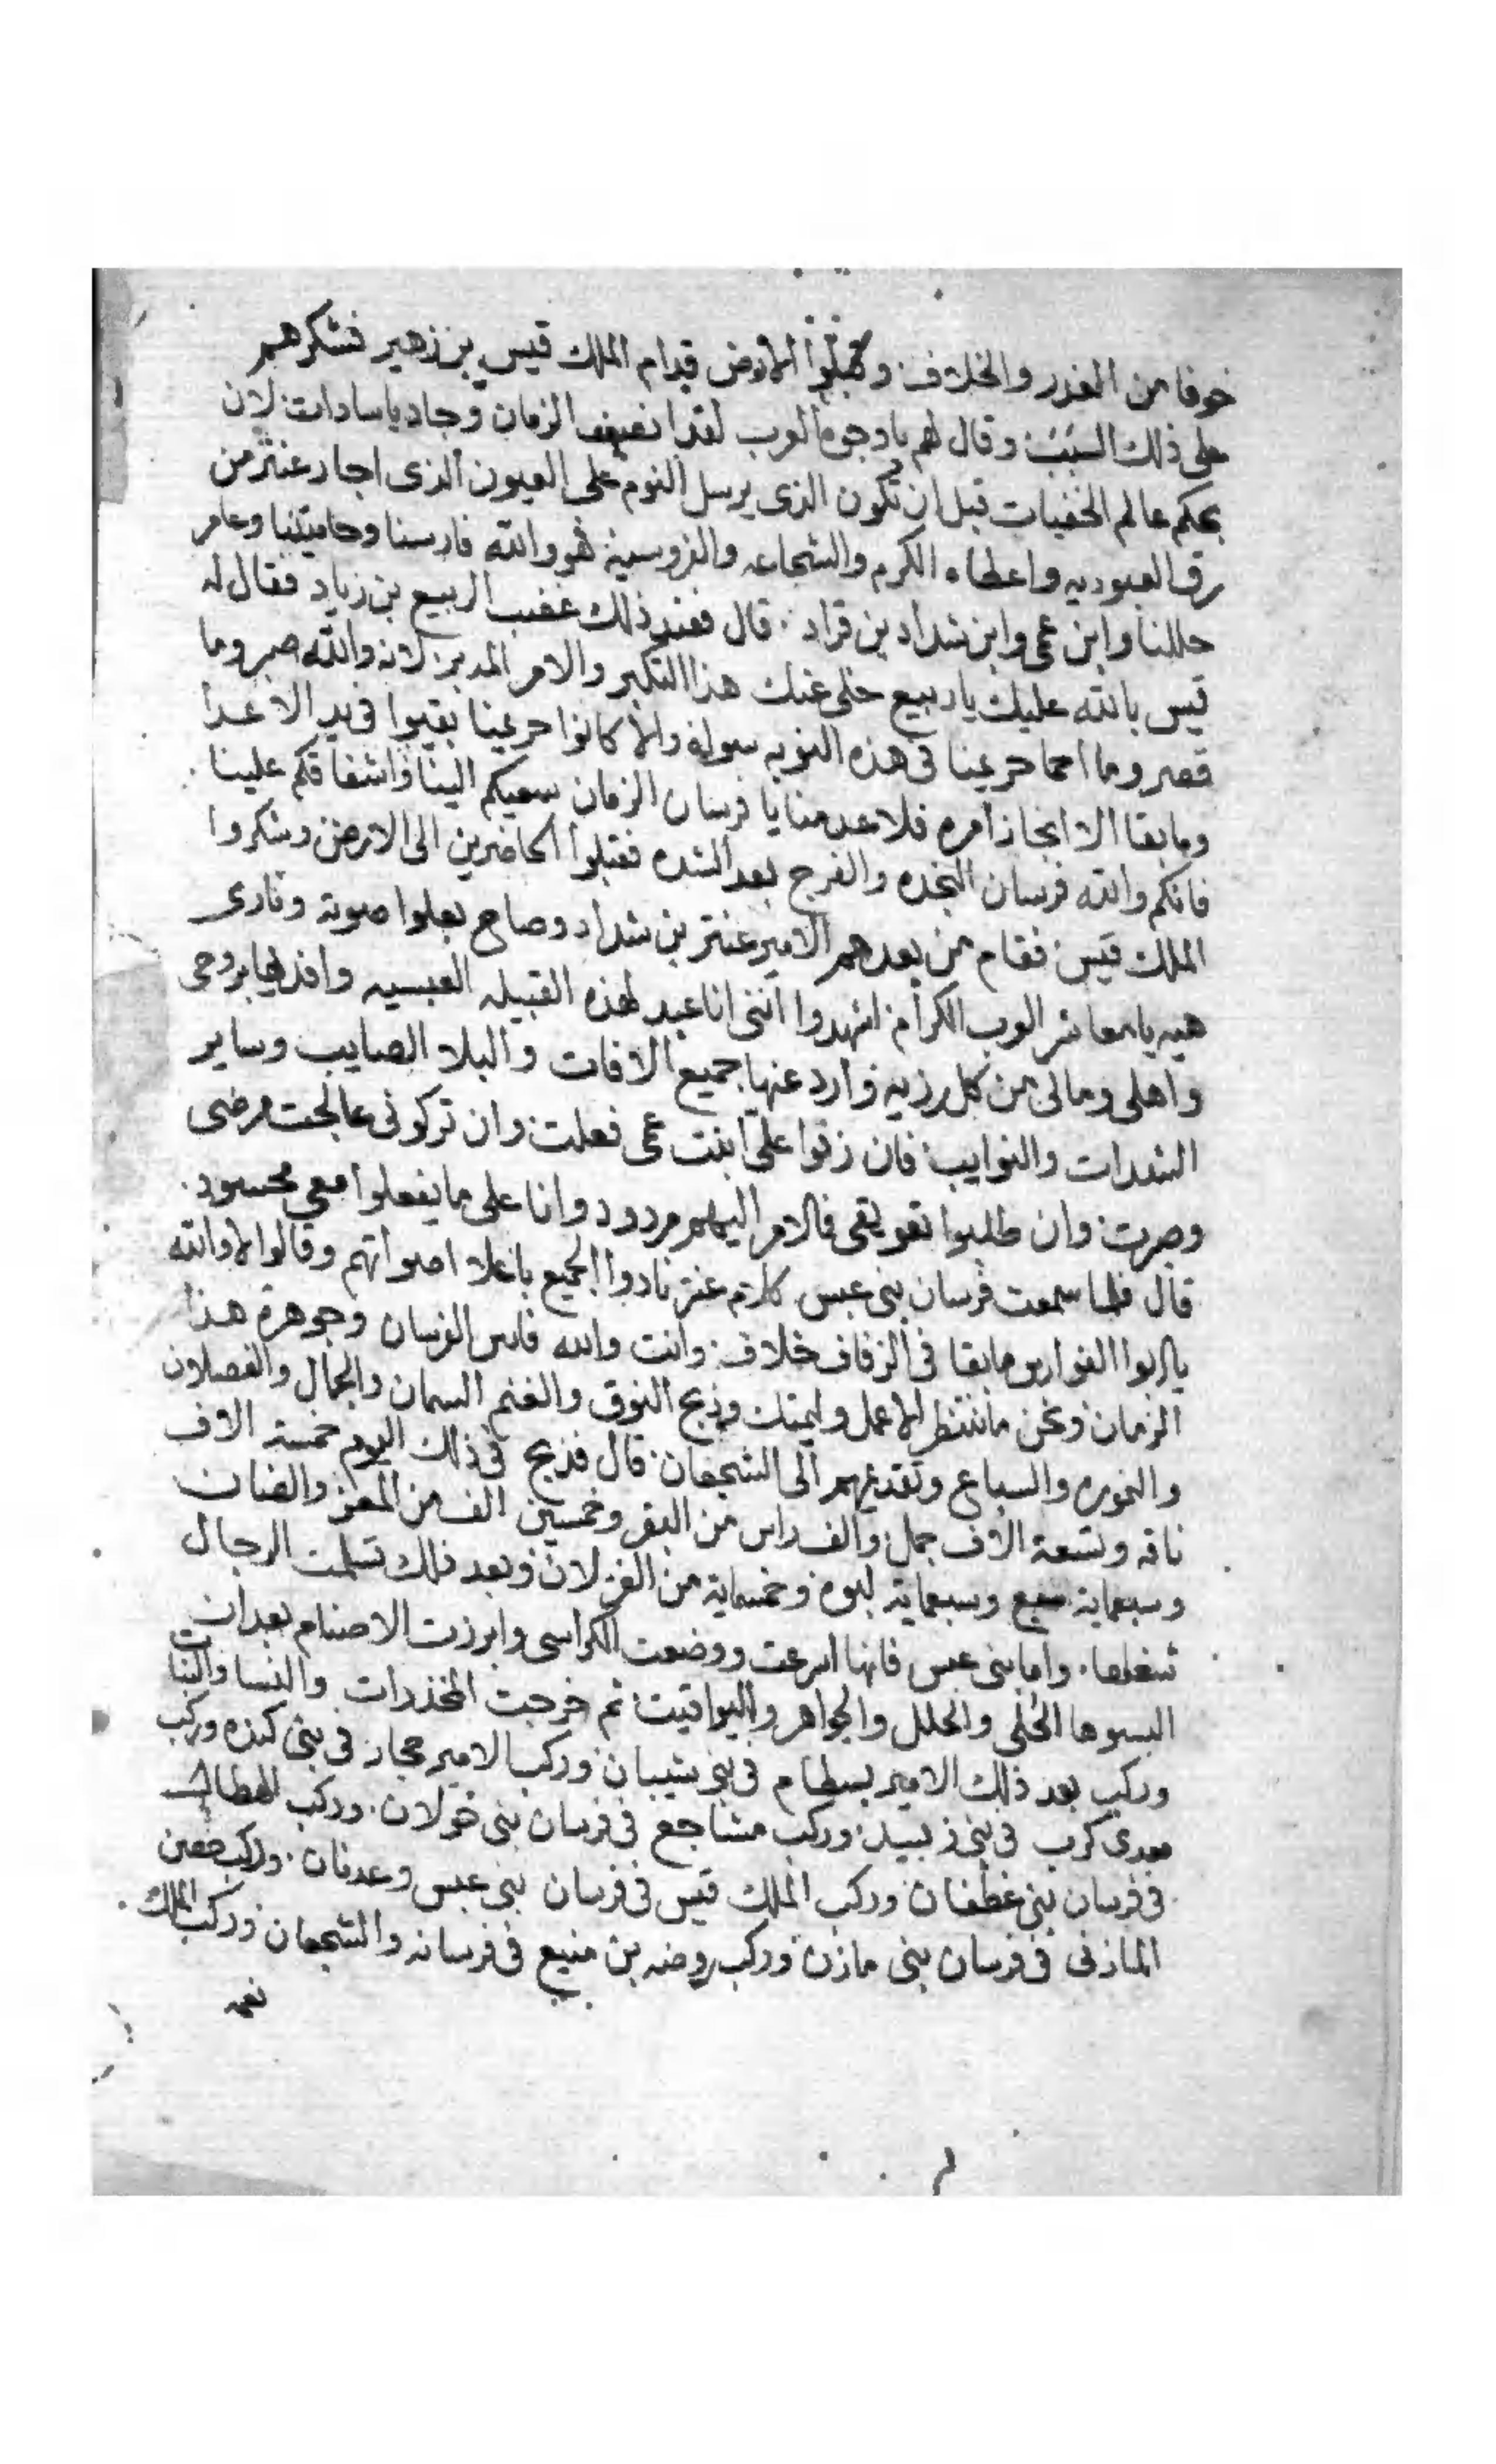 خوفا من الغدر والخلاف وقبلوا الارض قدام الملك قيس بن زهير فشكرهم
على ذلك السبب وقال لهم يا وجوه العرب لقد انصف الزمان وجاد يا سادات لان
بحكم عالم الخفيات قبل ان تكون الذى يرسل النوم على العيون الذى اجار عنتر من
رق العبوديه واعطاه الكرم والشجاعه والفروسية فهو والله فارسنا وحاميتنا وعامر
حللنا وابن عمى وابن شداد بن قراد قال فعند ذلك غضب الربيع بن زياد فقال له
قيس بالله عليك يا ربيع خلى عنك هذا التكبر والامر المدبر لانه والله صبر وما
قصر وما احما حريمنا فى هذه النوبه سواه والا كانوا حريمنا بقيوا فى يد الاعدا
وما بقا الا انجاز امره فلا عدمنا يا فرسان الزمان سعيكم الينا واشفاقكم علينا
فانكم والله فرسان النجده والفرج بعد الشده فقبلوا الحاضرين الى الارض وشكروا
الملك قيس فقام من بعدهم الامير عنتر بن شداد وصاح بعلوا صوته ونادى
هيه يا معاشر العرب الكرام اشهدوا اننى انا عبد لهذه القبيله العبسيه وافديها بروحى
واهلى ومالى من كل رزيه وارد عنها جميع الافات والبلا الصايب وساير
الشدرات والنوايب فان زفوا على ابنت عمى فعلت وان تركونى عالجت مرضى
وصبرت وان طلبوا تعويقى فالامر اليهم مردود وانا على ما يفعلوا معى محسود
قال فلما سمعت فرسان بنى عبس كلام عنتر نادوا الجميع باعلا اصواتهم وقالوا لا والله
يا ابوا الفوارس ما بقا فى الزفاف خلاف وانت والله فارس الفرسان وجوهرة هذا
الزمان ونحن ما ننتظر الا عمل وليمتك وذبح النوق والغنم السمان والجمال والفصلان
والنموره والسباع وتقديمهم الى الشجعان قال فذبح فى ذلك اليوم خمسة الاف
ناقه وتسعة الاف جمل والف راس من البقر وخمسين الف من المعز والضان
وسبعماية سبع وسبعماية لبوه وخمسماية من الغزلان وبعد ذلك تسلمت الرجال
شغلها واما بنى عبس فانها اسرعت ووضعت الكراسى وابرزت الاصنام بعد ان
البسوها الحلى والحلل والجواهر واليواقيت ثم خرجت المخدرات والنسا والبنات
وركب بعد ذلك الامير بسطام فى بنى شيبان وركب الامير حجار فى بنى كنده وركب
معدى كرب فى بنى زبيد وركب مشاجع فى فرسان بنى خولان وركب الهطال
فى فرسان بنى غطفان وركب الملك قيس فى فرسان بنى عبس وعدنان وركب حصن
المازنى فى فرسان بنى مازن وركب روضه بن منيع فى فرسانه والشجعان وركب الملك